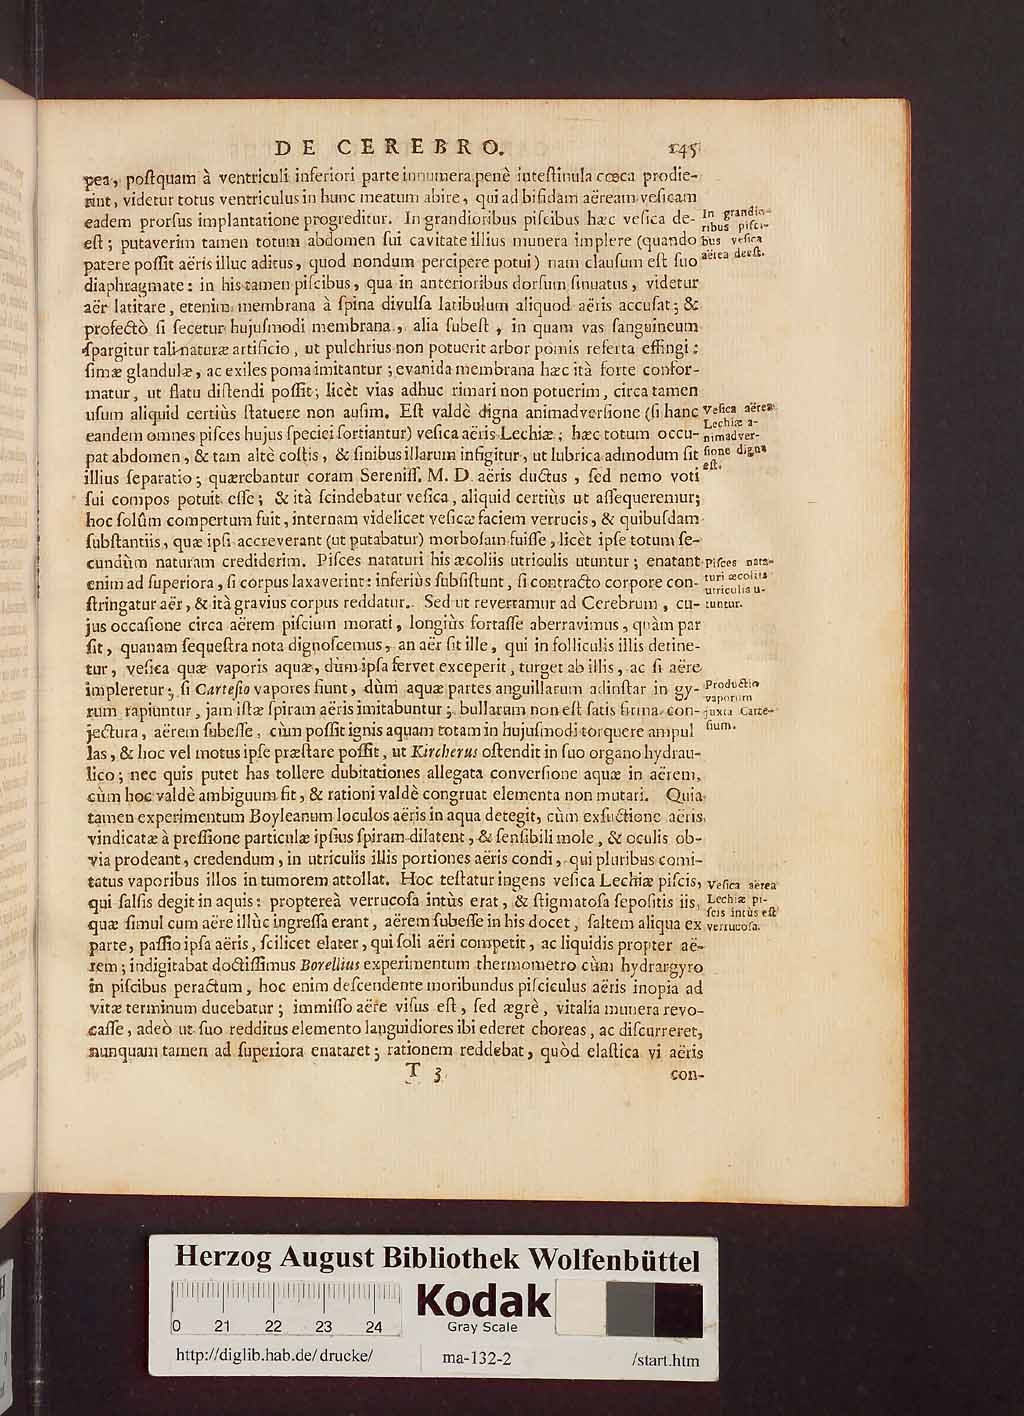 DE CEREBRO. 145
pea, poſtquam à ventriculi inferiori parte innumera penè inteſtinula cœca prodie-
rint, videtur totus ventriculus in hunc meatum abire, qui ad bifidam aëream veſicam
eadem prorſus implantatione progreditur. In grandioribus piſcibus hæc veſica de-
eſt; putaverim tamen totum abdomen ſui cavitate illius munera implere (quando
patere poſſit aëris illuc aditus, quod nondum percipere potui) nam clauſum eſt ſuo
diaphragmate: in his tamen piſcibus, qua in anterioribus dorſum ſinuatus, videtur
aër latitare, etenim membrana à ſpina divulſa latibulum aliquod aëris accuſat; &
profectò ſi ſecetur hujuſmodi membrana, alia ſubeſt, in quam vas ſanguineum
ſpargitur tali naturæ artificio, ut pulchrius non potuerit arbor pomis referta effingi:
ſimæ glandulæ, ac exiles poma imitantur; evanida membrana hæc ità forte confor-
matur, ut flatu diſtendi poſſit; licèt vias adhuc rimari non potuerim, circa tamen
uſum aliquid certiùs ſtatuere non auſim. Eſt valdè digna animadverſione (ſi hanc
eandem omnes piſces hujus ſpeciei ſortiantur) veſica aëris Lechiæ; hæc totum occu-
pat abdomen, & tam altè coſtis, & ſinibus illarum infigitur, ut lubrica admodum ſit
illius ſeparatio; quærebantur coram Sereniſſ. M. D. aëris ductus, ſed nemo voti
ſui compos potuit eſſe; & ità ſcindebatur veſica, aliquid certiùs ut aſſequeremur;
hoc ſolûm compertum fuit, internam videlicet veſicæ faciem verrucis, & quibuſdam
ſubſtantiis, quæ ipſi accreverant (ut putabatur) morboſam fuiſſe, licèt ipſe totum ſe-
cundùm naturam crediderim. Piſces nataturi his æcoliis utriculis utuntur; enatant
enim ad ſuperiora, ſi corpus laxaverint: inferiùs ſubſiſtunt, ſi contracto corpore con-
ſtringatur aër, & ità gravius corpus reddatur. Sed ut revertamur ad Cerebrum, cu-
jus occaſione circa aërem piſcium morati, longiùs fortaſſe aberravimus, quàm par
ſit, quanam ſequeſtra nota dignoſcemus, an aër ſit ille, qui in folliculis illis detine-
tur, veſica quæ vaporis aquæ, dùm ipſa fervet exceperit, turget ab illis, ac ſi aëre
impleretur; ſi Carteſio vapores fiunt, dùm aquæ partes anguillarum adinſtar in gy-
rum rapiuntur, jam iſtæ ſpiram aëris imitabuntur; bullarum non eſt ſatis firma con-
jectura, aërem ſubeſſe, cùm poſſit ignis aquam totam in hujuſmodi torquere ampul
las, & hoc vel motus ipſe præſtare poſſit, ut Kircherus oſtendit in ſuo organo hydrau-
lico; nec quis putet has tollere dubitationes allegata converſione aquæ in aërem,
cùm hoc valdè ambiguum ſit, & rationi valdè congruat elementa non mutari. Quia
tamen experimentum Boyleanum loculos aëris in aqua detegit, cùm exſuctione aëris
vindicatæ à preſſione particulæ ipſius ſpiram dilatent, & ſenſibili mole, & oculis ob-
via prodeant, credendum, in utriculis illis portiones aëris condi, qui pluribus comi-
tatus vaporibus illos in tumorem attollat. Hoc teſtatur ingens veſica Lechiæ piſcis,
qui ſalſis degit in aquis: proptereà verrucoſa intùs erat, & ſtigmatoſa ſepoſitis iis,
quæ ſimul cum aëre illùc ingreſſa erant, aërem ſubeſſe in his docet, ſaltem aliqua ex
parte, paſſio ipſa aëris, ſcilicet elater, qui ſoli aëri competit, ac liquidis propter aë-
rem; indigitabat doctiſſimus Borellius experimentum thermometro cùm hydrargyro
in piſcibus peractum, hoc enim deſcendente moribundus piſciculus aëris inopia ad
vitæ terminum ducebatur; immiſſo aëre viſus eſt, ſed ægrè, vitalia munera revo-
caſſe, adeò ut ſuo redditus elemento languidiores ibi ederet choreas, ac diſcurreret,
nunquam tamen ad ſuperiora enataret; rationem reddebat, quòd elaſtica vi aëris
T 3 con-
In grandio-
ribus piſci-
bus veſica
aërea deeſt.
Veſica aërea
Lechiæ a-
nimadver-
ſione digna
eſt.
Piſces nata-
turi æcoliis
utriculis u-
tuntur.
Productio
vaporum
juxta Carte-
ſium.
Veſica aërea
Lechiæ pi-
ſcis intùs eſt
verrucoſa.
Herzog August Bibliothek Wolfenbüttel
0 21 22 23 24
Kodak
Gray Scale
http://diglib.hab.de/drucke/ ma-132-2 /start.htm